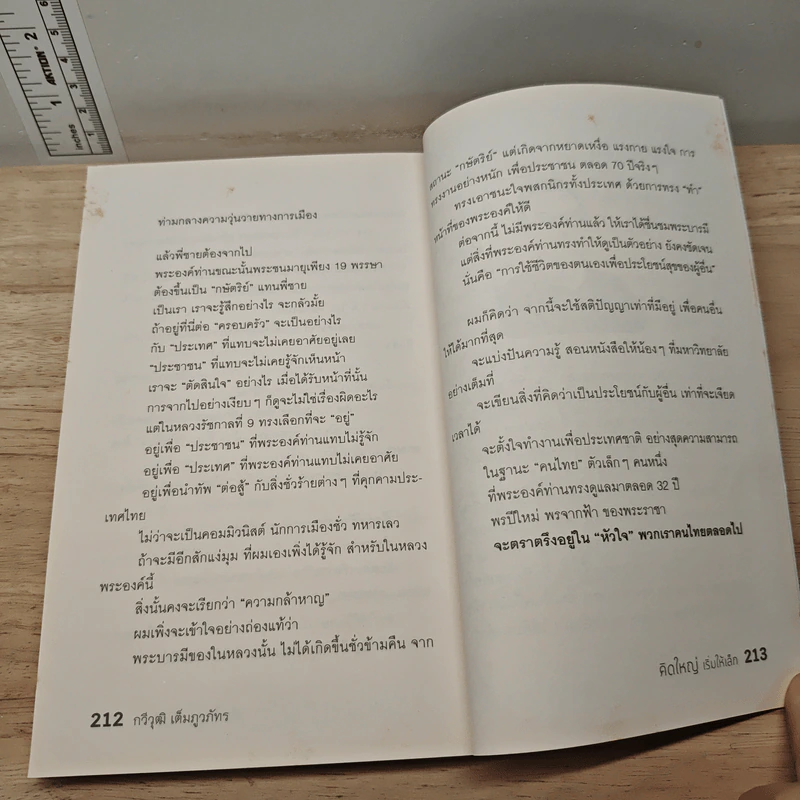 ท่ามกลางความวุ่นวายทางการเมือง
แล้วพี่ชายต้องจากไป
พระองค์ท่านขณะนั้นพระชนมายุเพียง 19 พรรษา
ต้องขึ้นเป็น “กษัตริย์” แทนพี่ชาย
เป็นเรา เราจะรู้สึกอย่างไร จะกลัวมั้ย
ถ้าอยู่ที่นี่ต่อ “ครอบครัว” จะเป็นอย่างไร
กับ “ประเทศ” ที่แทบจะไม่เคยอาศัยอยู่เลย
“ประชาชน” ที่แทบจะไม่เคยรู้จักเห็นหน้า
เราจะ “ตัดสินใจ” อย่างไร เมื่อได้รับหน้าที่นั้น
การจากไปอย่างเงียบๆ ก็ดูจะไม่ใช่เรื่องผิดอะไร
แต่ในหลวงรัชกาลที่ 9 ทรงเลือกที่จะ “อยู่”
อยู่เพื่อ “ประชาชน” ที่พระองค์ท่านแทบไม่รู้จัก
อยู่เพื่อ “ประเทศ” ที่พระองค์ท่านแทบไม่เคยอาศัย
อยู่เพื่อนำทัพ “ต่อสู้” กับสิ่งชั่วร้ายต่างๆ ที่คุกคามประ-
เทศไทย
ไม่ว่าจะเป็นคอมมิวนิสต์ นักการเมืองชั่ว ทหารเลว
ถ้าจะมีอีกสักแง่มุม ที่ผมเองเพิ่งได้รู้จัก สำหรับในหลวง
พระองค์นี้
สิ่งนั้นคงจะเรียกว่า “ความกล้าหาญ”
ผมเพิ่งจะเข้าใจอย่างถ่องแท้ว่า
พระบารมีของในหลวงนั้น ไม่ได้เกิดขึ้นชั่วข้ามคืน จาก
212 กวีวุฒิ เต็มภูวภัทร
“กษัตริย์” แต่เกิดจากหยาดเหงื่อ แรงกาย แรงใจ การ
ทรงงานอย่างหนัก เพื่อประชาชน ตลอด 70 ปีจริงๆ
ทรงเอาชนะใจพสกนิกรทั้งประเทศ ด้วยการทรง “ทำ”
หน้าที่ของพระองค์ให้ดี
ต่อจากนี้ ไม่มีพระองค์ท่านแล้ว ให้เราได้ชื่นชมพระบารมี
แต่สิ่งที่พระองค์ท่านทรงทำให้ดูเป็นตัวอย่าง ยังคงชัดเจน
นั่นคือ “การใช้ชีวิตของตนเองเพื่อประโยชน์สุขของผู้อื่น”
ผมก็คิดว่า จากนี้จะใช้สติปัญญาเท่าที่มีอยู่ เพื่อคนอื่น
ให้ได้มากที่สุด
จะแบ่งปันความรู้ สอนหนังสือให้น้องๆ ที่มหาวิทยาลัย
อย่างเต็มที่
จะเขียนสิ่งที่คิดว่าเป็นประโยชน์กับผู้อื่น เท่าที่จะเจียด
เวลาได้
จะตั้งใจทำงานเพื่อประเทศชาติ อย่างสุดความสามารถ
ในฐานะ “คนไทย” ตัวเล็กๆ คนหนึ่ง
ที่พระองค์ท่านทรงดูแลมาตลอด 32 ปี
พรปีใหม่ พรจากฟ้า ของพระราชา
จะตราตรึงอยู่ใน “หัวใจ” พวกเราคนไทยตลอดไป
คิดใหญ่ เริ่มให้เล็ก 213
AKTION
inches
1
2
1
2
3
4
5
6